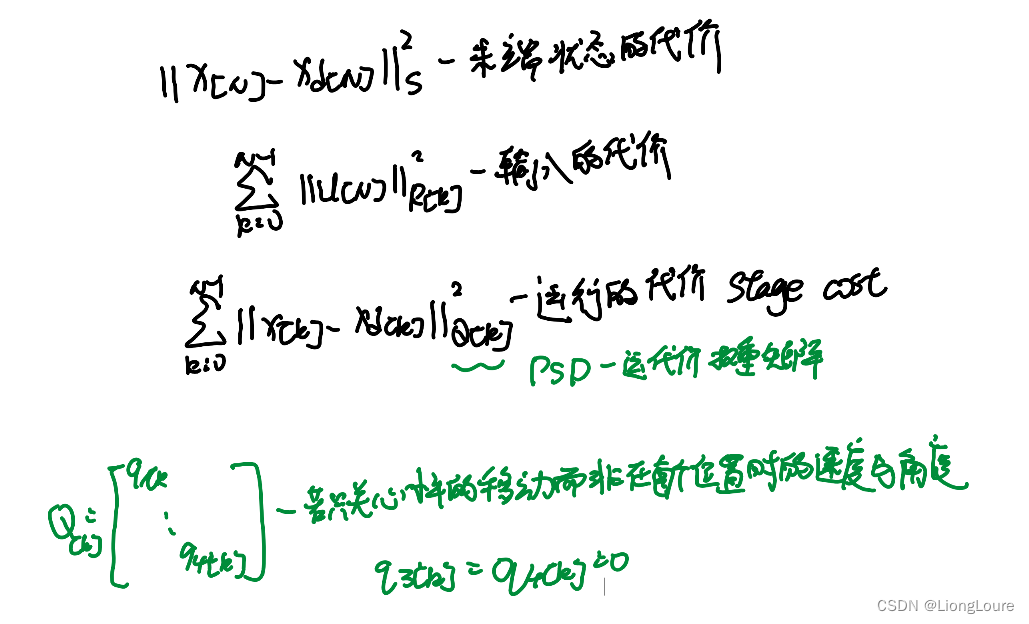 ||x[N]-xd[N]||²_S - 末端状态的代价
N-1
∑ ||u[N]||²_R[k] - 输入的代价
k=0
N-1
∑ ||x[k]-xd[k]||²_Q[k] - 运行的代价 Stage cost
k=0
PSD - 运代价 权重矩阵
Q[k]= [q1[k] ⋱ q4[k]] - 若只关心的移动而非在每个位置时的速度与角度
q3[k] = q4[k] = 0
CSDN @LiongLoure